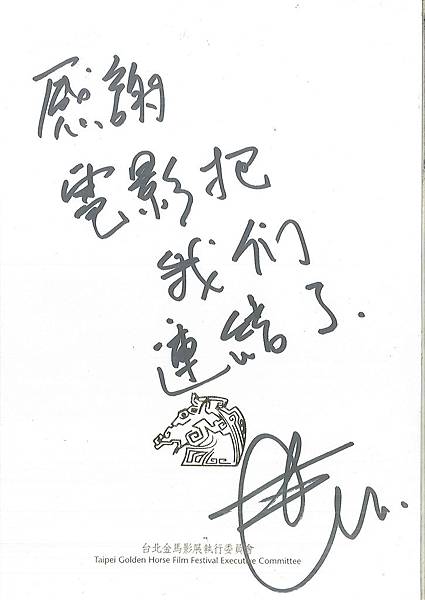 感謝
電影把
我们
連結了.
台北金馬影展執行委員會
Taipei Golden Horse Film Festival Executive Committee